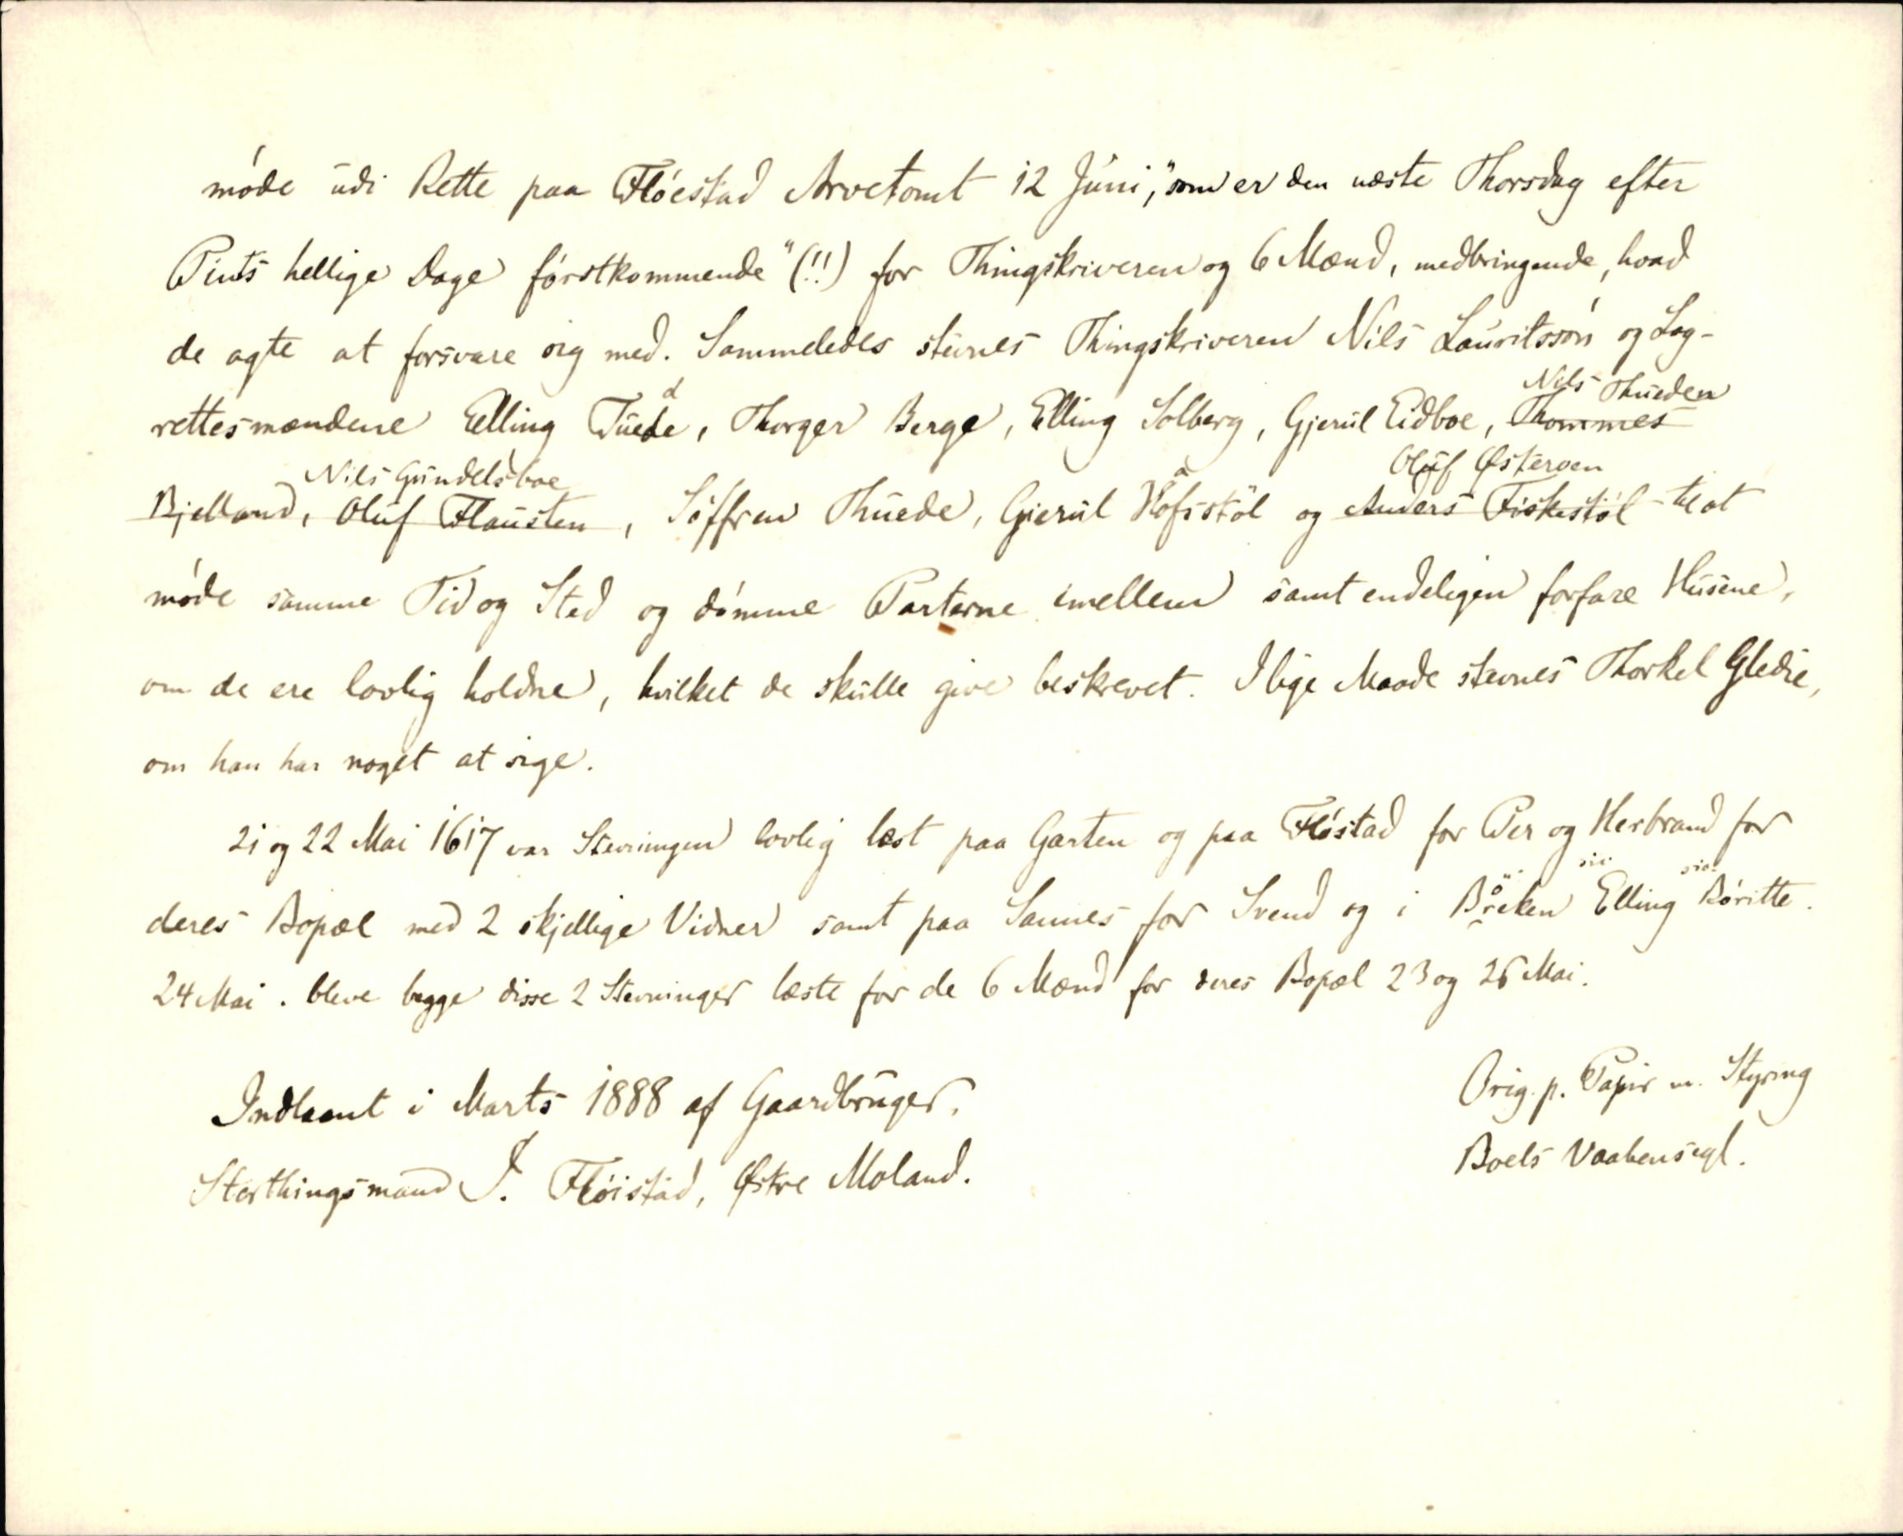 møde udi Rette paa Fløestad Arvetomt 12 Juni, "som er den næste Thorsdag efter
Pints hellige Dage førstkommende" (!!) for Thingskriveren og 6 Mænd, medbringende, hvad
de agte at forsvare sig med. Sammeledes stevnes Thingskriveren Nils Lauritssøn og Lag-
Nils Thueden
rettesmændene Elling Tuede, Thorger Berge, Elling Solberg, Gjerul Eidboe, Thommes
Nils Gundelsboe Oluf Østeroen
Bjelland, Oluf Flausten, Søffren Thuede, Gjerul Höfsstöl og Anders Fiskestøl til at
møde samme Tid og Sted og dømme Parterne imellem samt endeligen forfare Husene,
om de ere lovlig holdne, hvilket de skulle give beskrevet. I lige Maade stevnes Thorkel Gledie,
om han har noget at sige.
21 og 22 Mai 1617 var Stevningen lovlig læst paa Garten og paa Fløstad for Per og Herbrand for
sic. sic.
deres Bopæl med 2 skjellige Vidner samt paa Sannes for Svend og i Bröken Elling Böritte.
24 Mai. bleve begge disse 2 Stevninger læste for de 6 Mænd for deres Bopæl 23 og 26 Mai.
Indlaant i Marts 1888 af Gaardbruger,
Storthingsmand J. Fløistad, Østre Moland.
Orig. p. Papir m. Styring
Boels Vaabensegl.